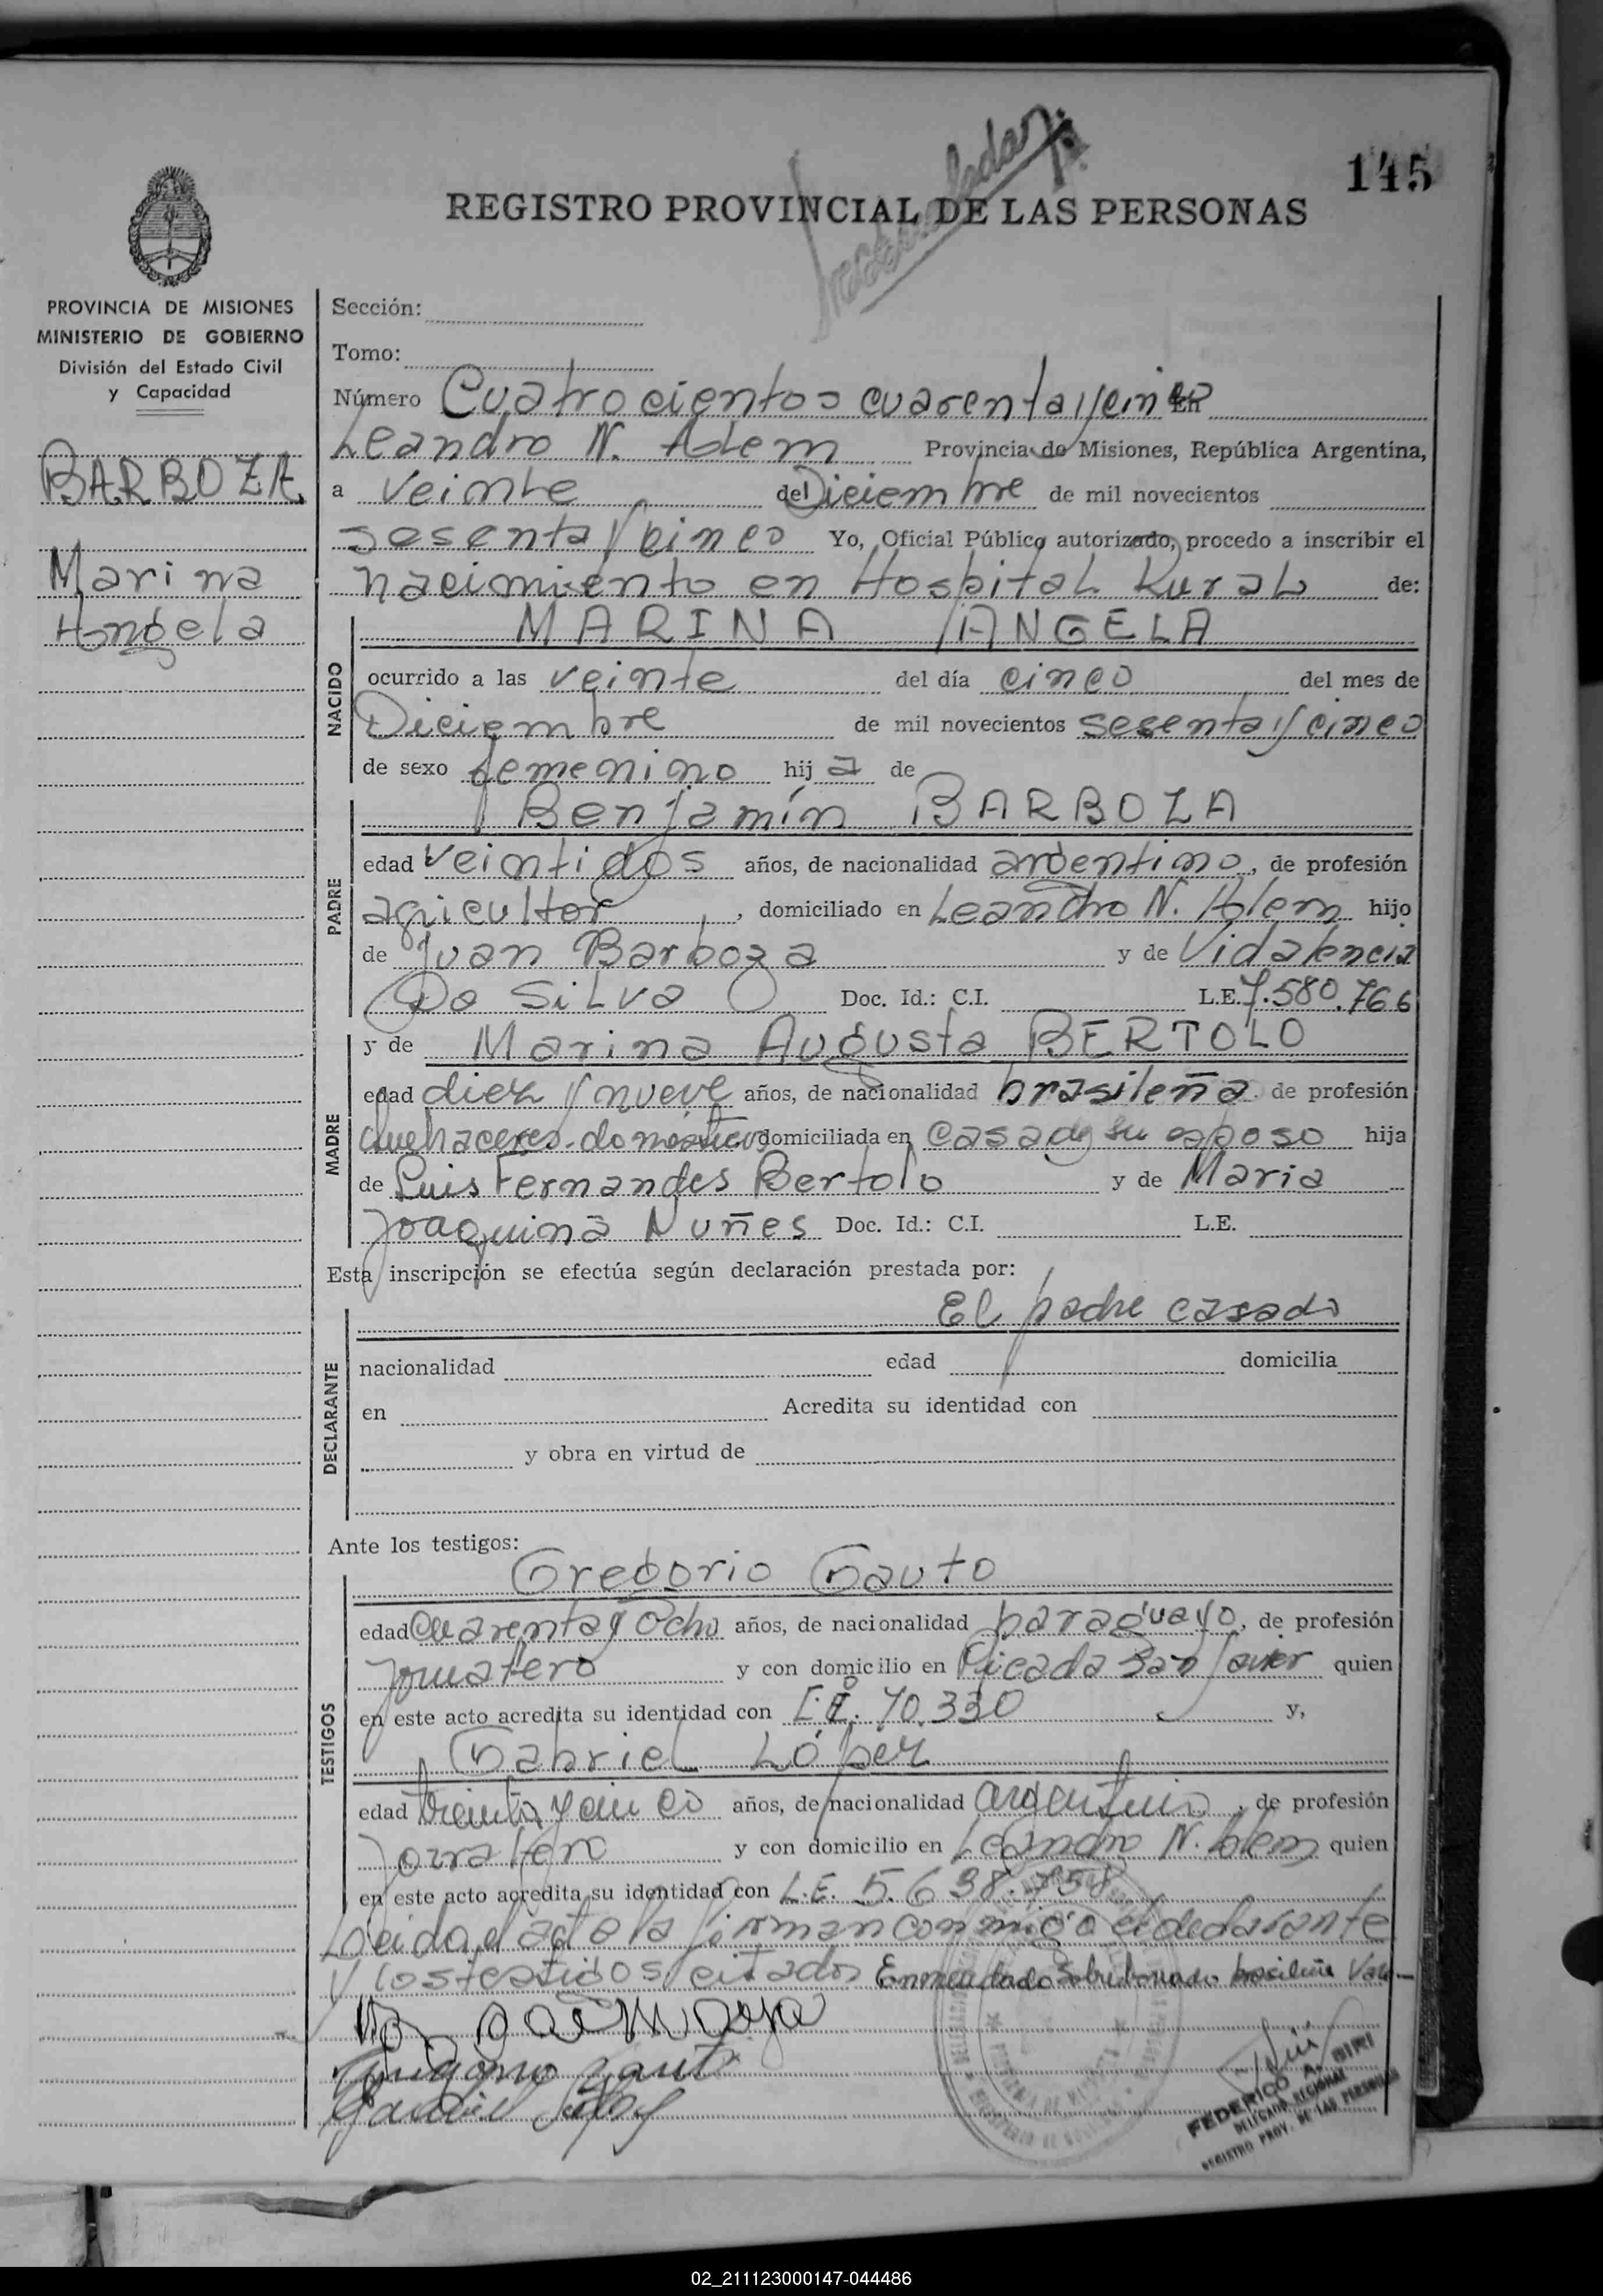 145
REGISTRO PROVINCIAL DE LAS PERSONAS
PROVINCIA DE MISIONES
MINISTERIO DE GOBIERNO
División del Estado Civil
y Capacidad
BARBOZA
Marina
Angela
Sección:
Tomo:
Número Cuatrocientos cuarenta y cinco En
Leandro N. Alem Provincia de Misiones, República Argentina,
a veinte de Diciembre de mil novecientos
sesenta y cinco Yo, Oficial Público autorizado, procedo a inscribir el
nacimiento en Hospital Rural de:
NACIDO
MARINA ANGELA
ocurrido a las veinte del día cinco del mes de
Diciembre de mil novecientos sesenta y cinco
de sexo femenino hija de
PADRE
Benjamín BARBOZA
edad veintidos años, de nacionalidad argentino, de profesión
agricultor, domiciliado en Leandro N. Alem hijo
de Juan Barboza y de Vidalencia
Do Silva Doc. Id.: C.I. L.E. 7.580.766
MADRE
y de Marina Augusta BERTOLO
edad diez y nueve años, de nacionalidad brasileña de profesión
Quehaceres domésticos domiciliada en casa de su esposo hija
de Luis Fernandes Bertolo y de Maria
Joaquina Nuñes Doc. Id.: C.I. L.E.
Esta inscripción se efectúa según declaración prestada por:
DECLARANTE
El padre casado
nacionalidad edad domicilia
en Acredita su identidad con
y obra en virtud de
Ante los testigos:
TESTIGOS
Gregorio Gauto
edad Cuarenta y Ocho años, de nacionalidad paraguayo, de profesión
Jornalero y con domicilio en Picada San Javier quien
en este acto acredita su identidad con 70.330 y,
Gabriel López
edad treinta y cinco años, de nacionalidad argentino, de profesión
Jornalero y con domicilio en Leandro N. Alem quien
en este acto acredita su identidad con L.E. 5.638.758
Leida el acta la firman conmigo el declarante
y los testigos citados Enmendado Sobreborrado brasileña Vale-
Gregorio Gauto
Gabriel López
FEDERICO A. BIRI
DELEGADO REGIONAL
REGISTRO PROV. DE LAS PERSONAS
02_211123000147-044486